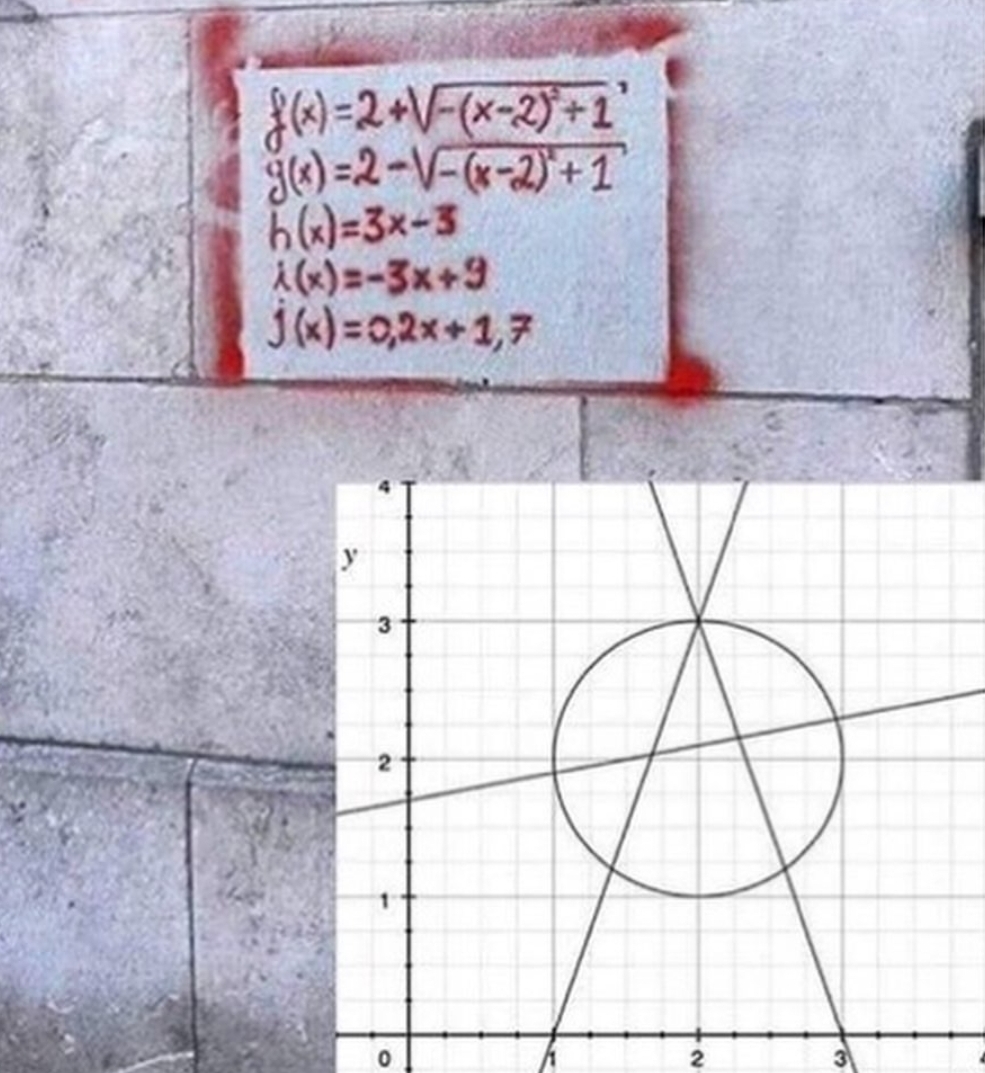 f(x)=2+√-(x-2)²+1
g(x)=2-√-(x-2)²+1
h(x)=3x-3
i(x)=-3x+9
j(x)=0,2x+1,7
4
y
3
2
1
0 1 2 3 4